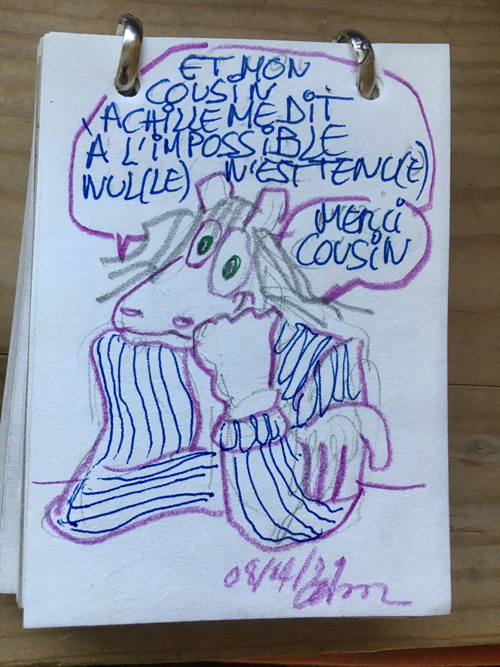 ET MON
COUSIN
ACHILLE ME DIT
A L'IMPOSSIBLE
NUL(LE) N'EST TENU(E)
MERCI
COUSIN